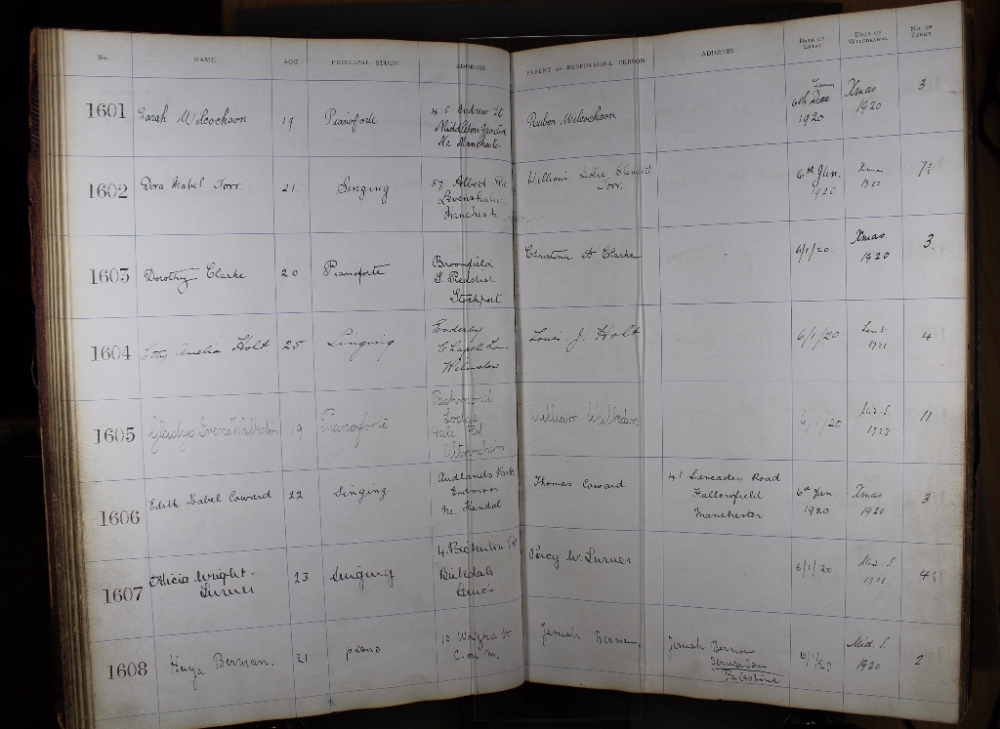 No. NAME AGE PRINCIPAL STUDY ADDRESS PARENT or RESPONSIBLE PERSON ADDRESS DATE OF ENTRY DATE OF WITHDRAWAL No. OF TERMS
1601 Sarah Wilcockson 19 Pianoforte 45 Andrew St Reuben Wilcockson 1920 Xmas 1920 3
Middleton Junction
Nr Manchester
1602 Dora Mabel Torr. 21. Singing 57. Albert Rd William Torr. 6th Jan. 1920. Xmas 1922 7½
Levenshulme
Manchester
1603 Dorothy Clarke 20 Pianoforte Broomfield Christina A Clarke 6/1/20 Xmas 1920 3
S. Reddish
Stockport
1604 Amelia Holt 25 Singing Enderby Louis J. Holt 6/1/20 Lent 1921 4
Chapel Lane
Wilmslow
1605 Gladys Irene 19 Pianoforte Richmond William 6/1/20 Mid. S. 1923 11
Lodge
Hale Rd
Altrincham
1606 Edith Mabel Coward 22 Singing Thomas Coward 41 Lancaster Road 6th Jan. 1920 Xmas 1920 3
Endmoor Fallowfield
Nr. Kendal Manchester
1607 Alicia Wright- 23 Singing 4. Percy W. Turner 6/1/20 Mid. S. 1921 4½
Turner Birkdale
Lancs
1608 Haya Berman. 21 piano 10 Wright St Jeruah Berman. Jeruah Berman 6/1/20 Mid. S. 1920 2
C. on M. Jerusalem
Palestine